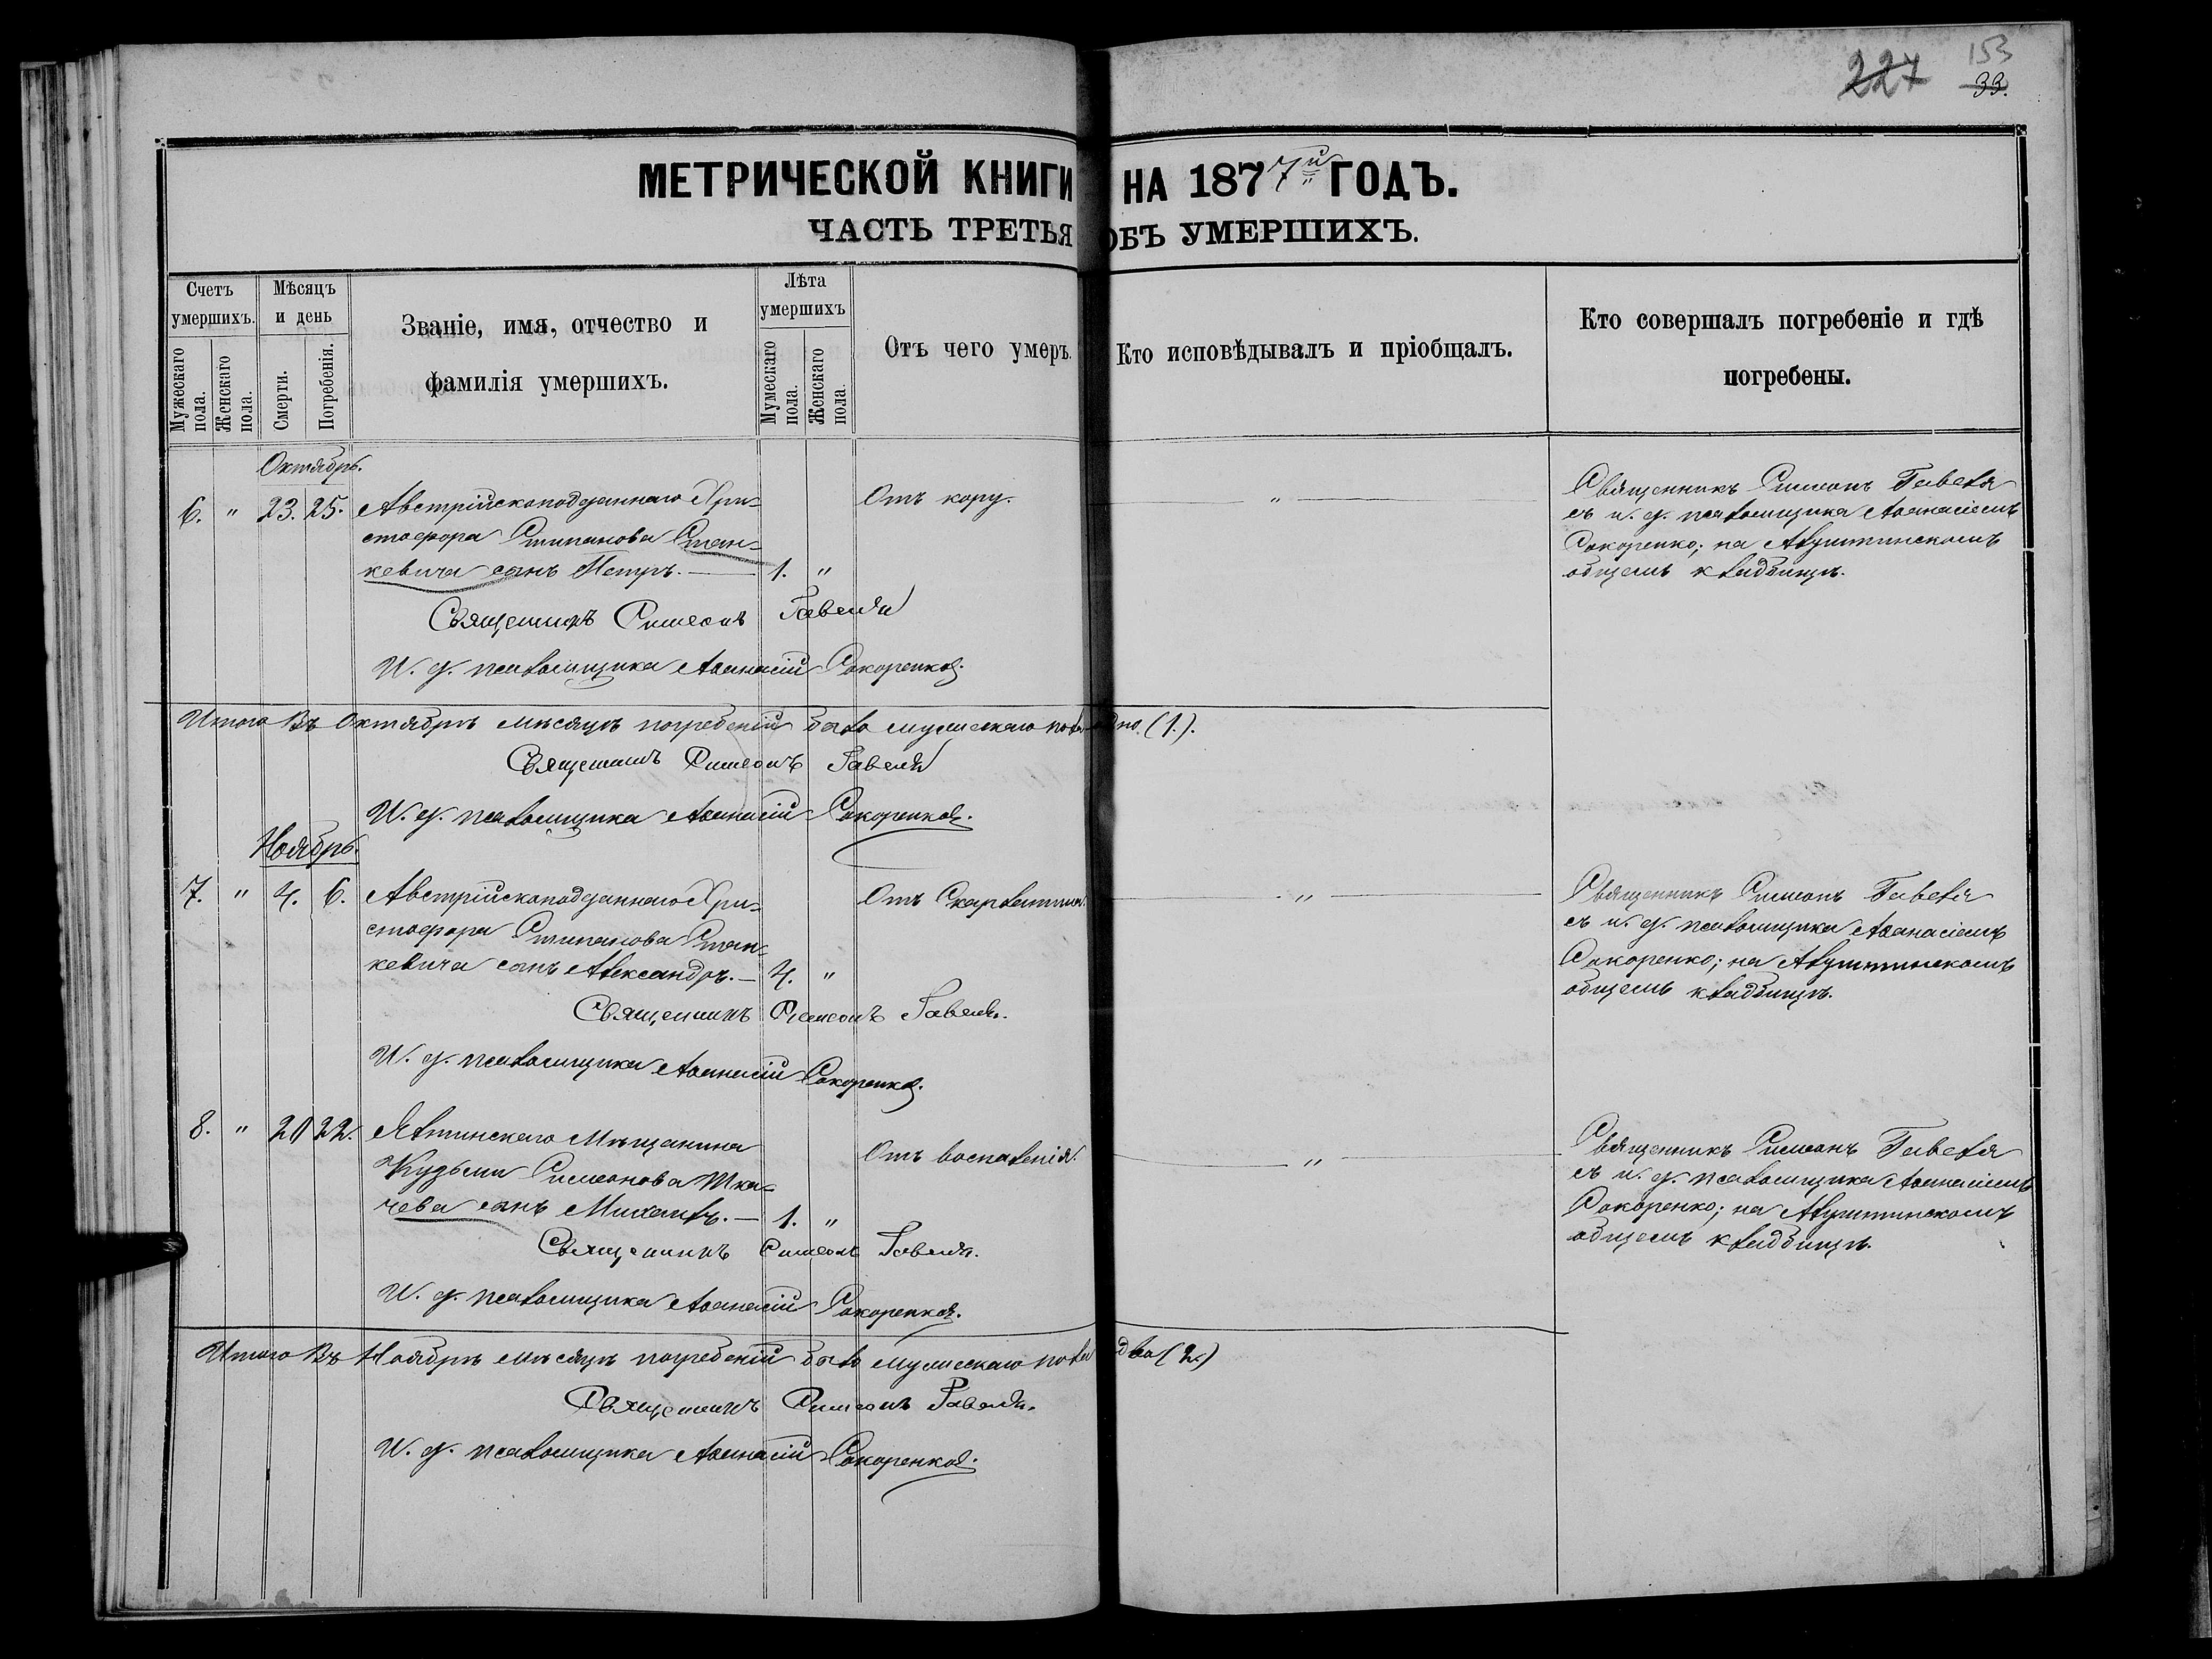 227 153
33.
МЕТРИЧЕСКОЙ КНИГИ НА 1877й ГОДЪ.
ЧАСТЬ ТРЕТЬЯ ОБЪ УМЕРШИХЪ.
Счетъ умершихъ.
Мужескаго пола.
Женскаго пола.
Мѣсяцъ и день
Смерти.
Погребенія.
Званіе, имя, отчество и
фамилія умершихъ.
Лѣта умершихъ
Мужескаго пола.
Женскаго пола.
Отъ чего умеръ.
Кто исповѣдывалъ и пріобщалъ.
Кто совершалъ погребеніе и гдѣ
погребены.
Октябрь.
6. " 23. 25. Австрійскоподданнаго Хри-
стофора Стипанова Стан-
кевича сынъ Петръ. — 1. "
Отъ кору.
"
Священникъ Симеонъ Гавеля
съ и. д. псаломщика Аѳанасіемъ
Сокоренко; на Алуштинскомъ
общемъ кладбищѣ.
Священникъ Симеонъ Гавеля
И. д. псаломщика Аѳанасій Сокоренко.
Итого въ Октябрѣ мѣсяцѣ погребеній было мужескаго пола одно. (1.).
Священникъ Симеонъ Гавеля
И. д. псаломщика Аѳанасій Сокоренко.
Ноябрь.
7. " 4. 6. Австрійскоподданнаго Хри-
стофора Стипанова Стан-
кевича сынъ Александръ. — 4. "
Отъ Скарлатины.
"
Священникъ Симеонъ Гавеля
съ и. д. псаломщика Аѳанасіемъ
Сокоренко; на Алуштинскомъ
общемъ кладбищѣ.
Священникъ Симеонъ Гавеля.
И. д. псаломщика Аѳанасій Сокоренко.
8. " 20 22. Ялтинскаго Мѣщанина
Кудьми Симеонова Тка-
чева сынъ Михаилъ. — 1. "
Отъ воспаленія.
"
Священникъ Симеонъ Гавеля
съ и. д. псаломщика Аѳанасіемъ
Сокоренко; на Алуштинскомъ
общемъ кладбищѣ.
Священникъ Симеонъ Гавеля.
И. д. псаломщика Аѳанасій Сокоренко.
Итого въ Ноябрѣ мѣсяцѣ погребеній было мужескаго пола два (2.)
Священникъ Симеонъ Гавеля.
И. д. псаломщика Аѳанасій Сокоренко.